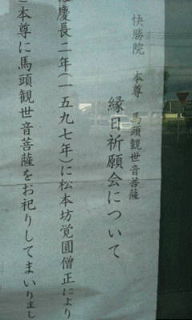 快勝院 本尊 馬頭観世音菩薩
縁日祈願会について
慶長二年(一五九七年)に松本坊覚圓僧正により
本尊に馬頭観世音菩薩をお祀りしてまいりまし